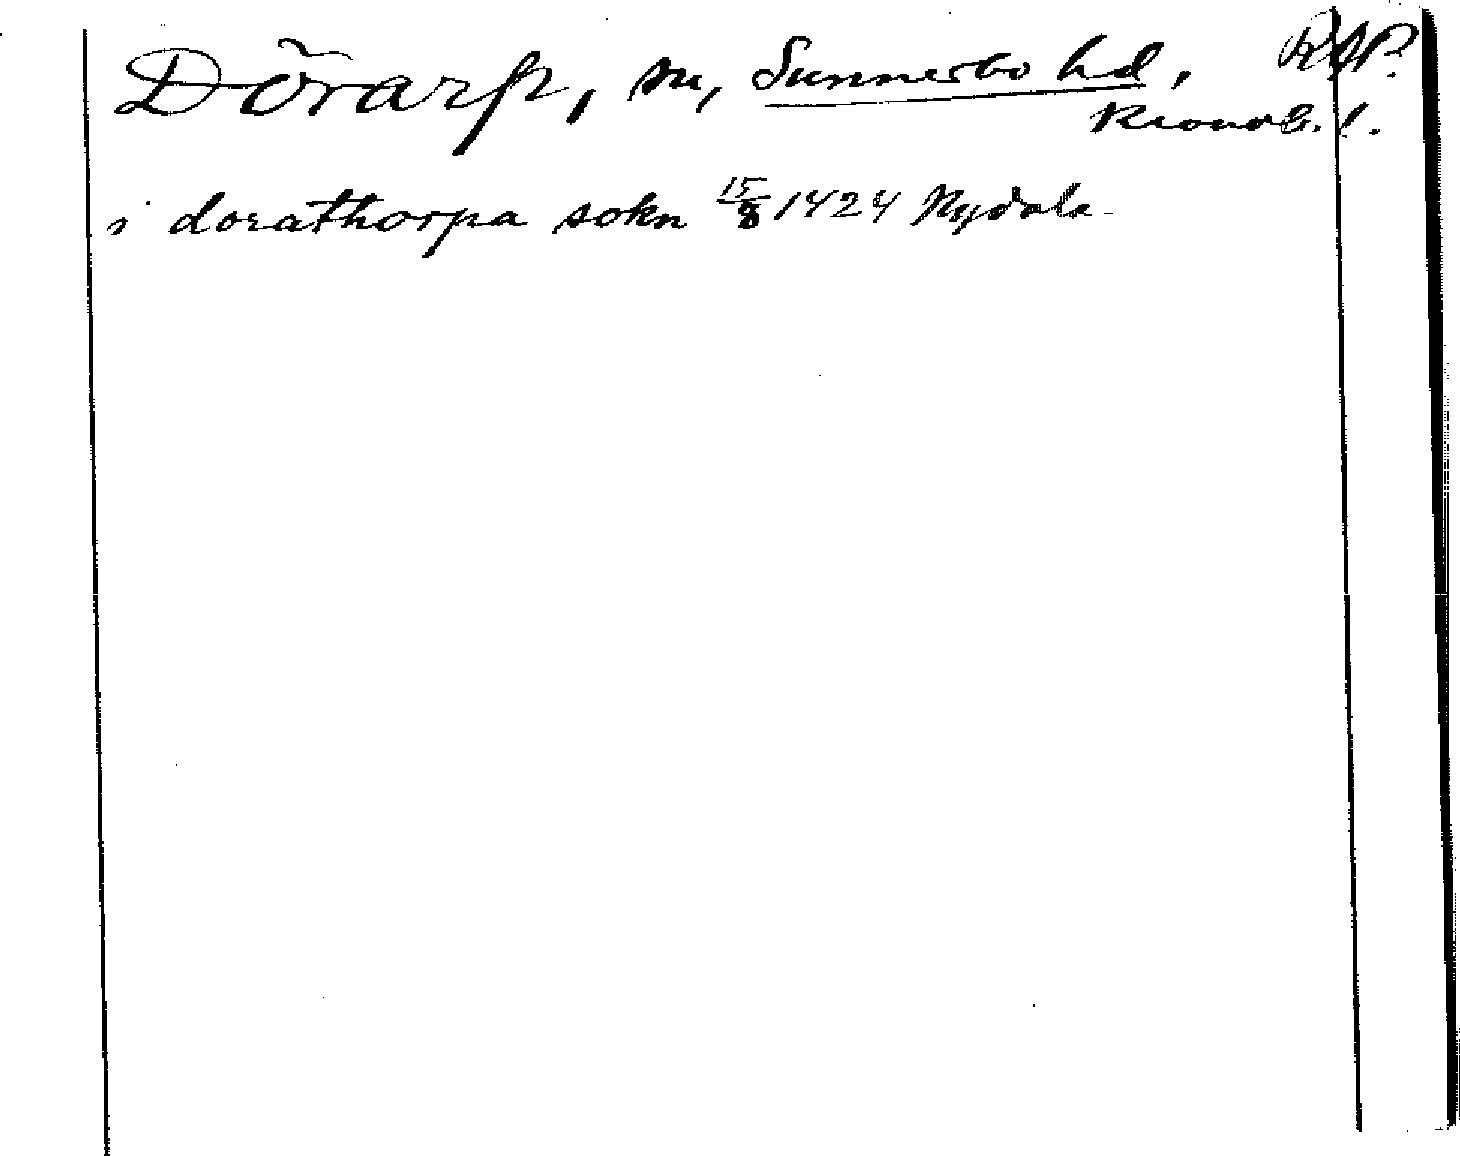 Dörarp, sn, Sunnerbo hd, RAP.
Kronob. l.
i dorathorpa sokn 15/8 1424 Nydala